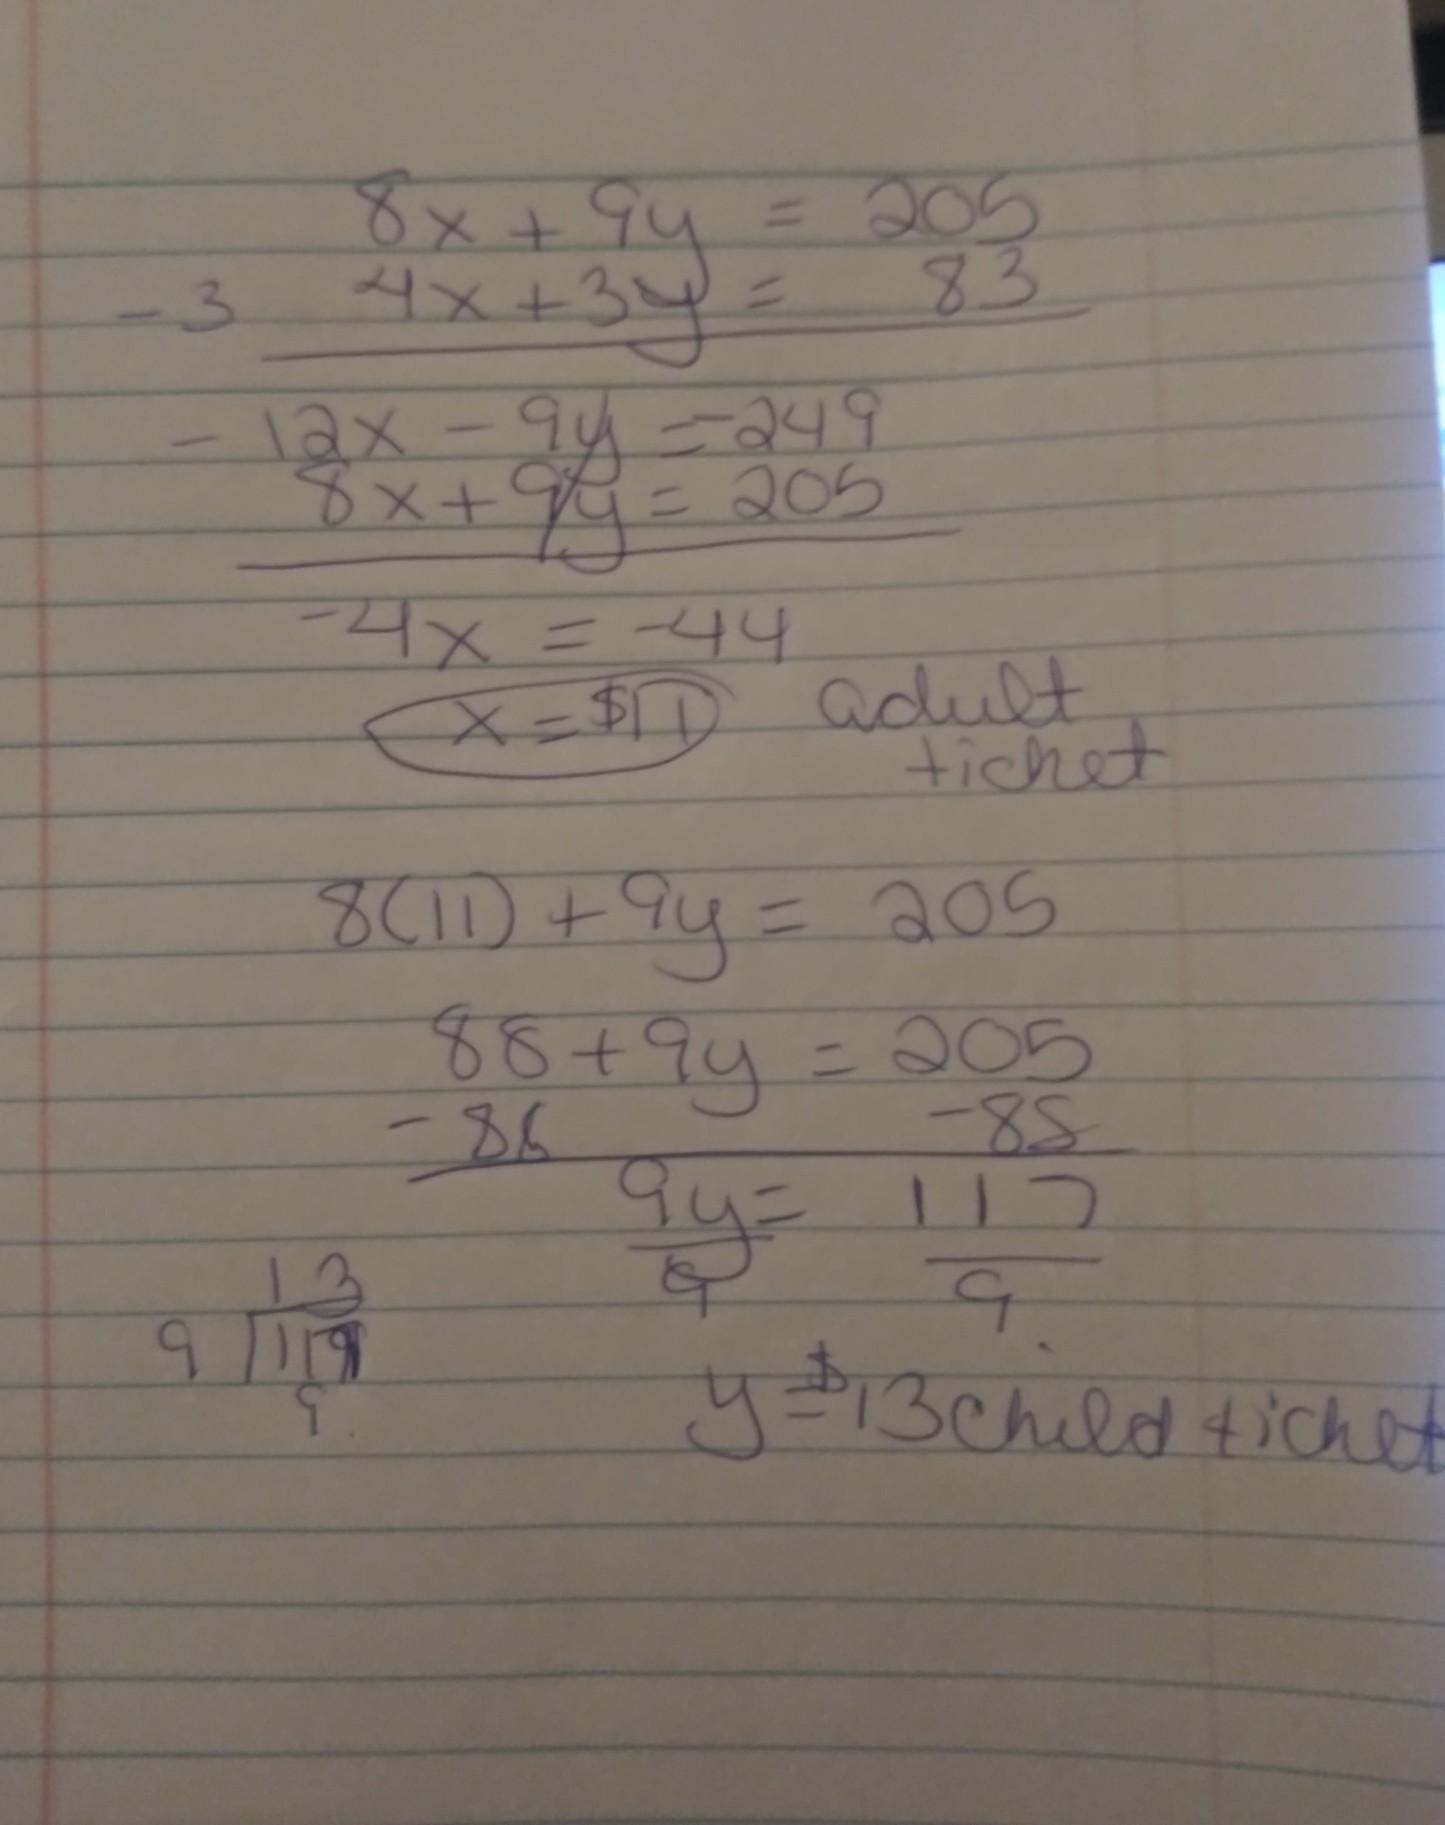 8x + 9y = 205
-3 4x + 3y = 83
- 12x - 9y = -249
8x + 9y = 205
-4x = -44
x = $11 adult
ticket
8(11) + 9y = 205
88 + 9y = 205
- 88 -88
9y = 117
9 9
13
9 117
9
y = $13 child ticket